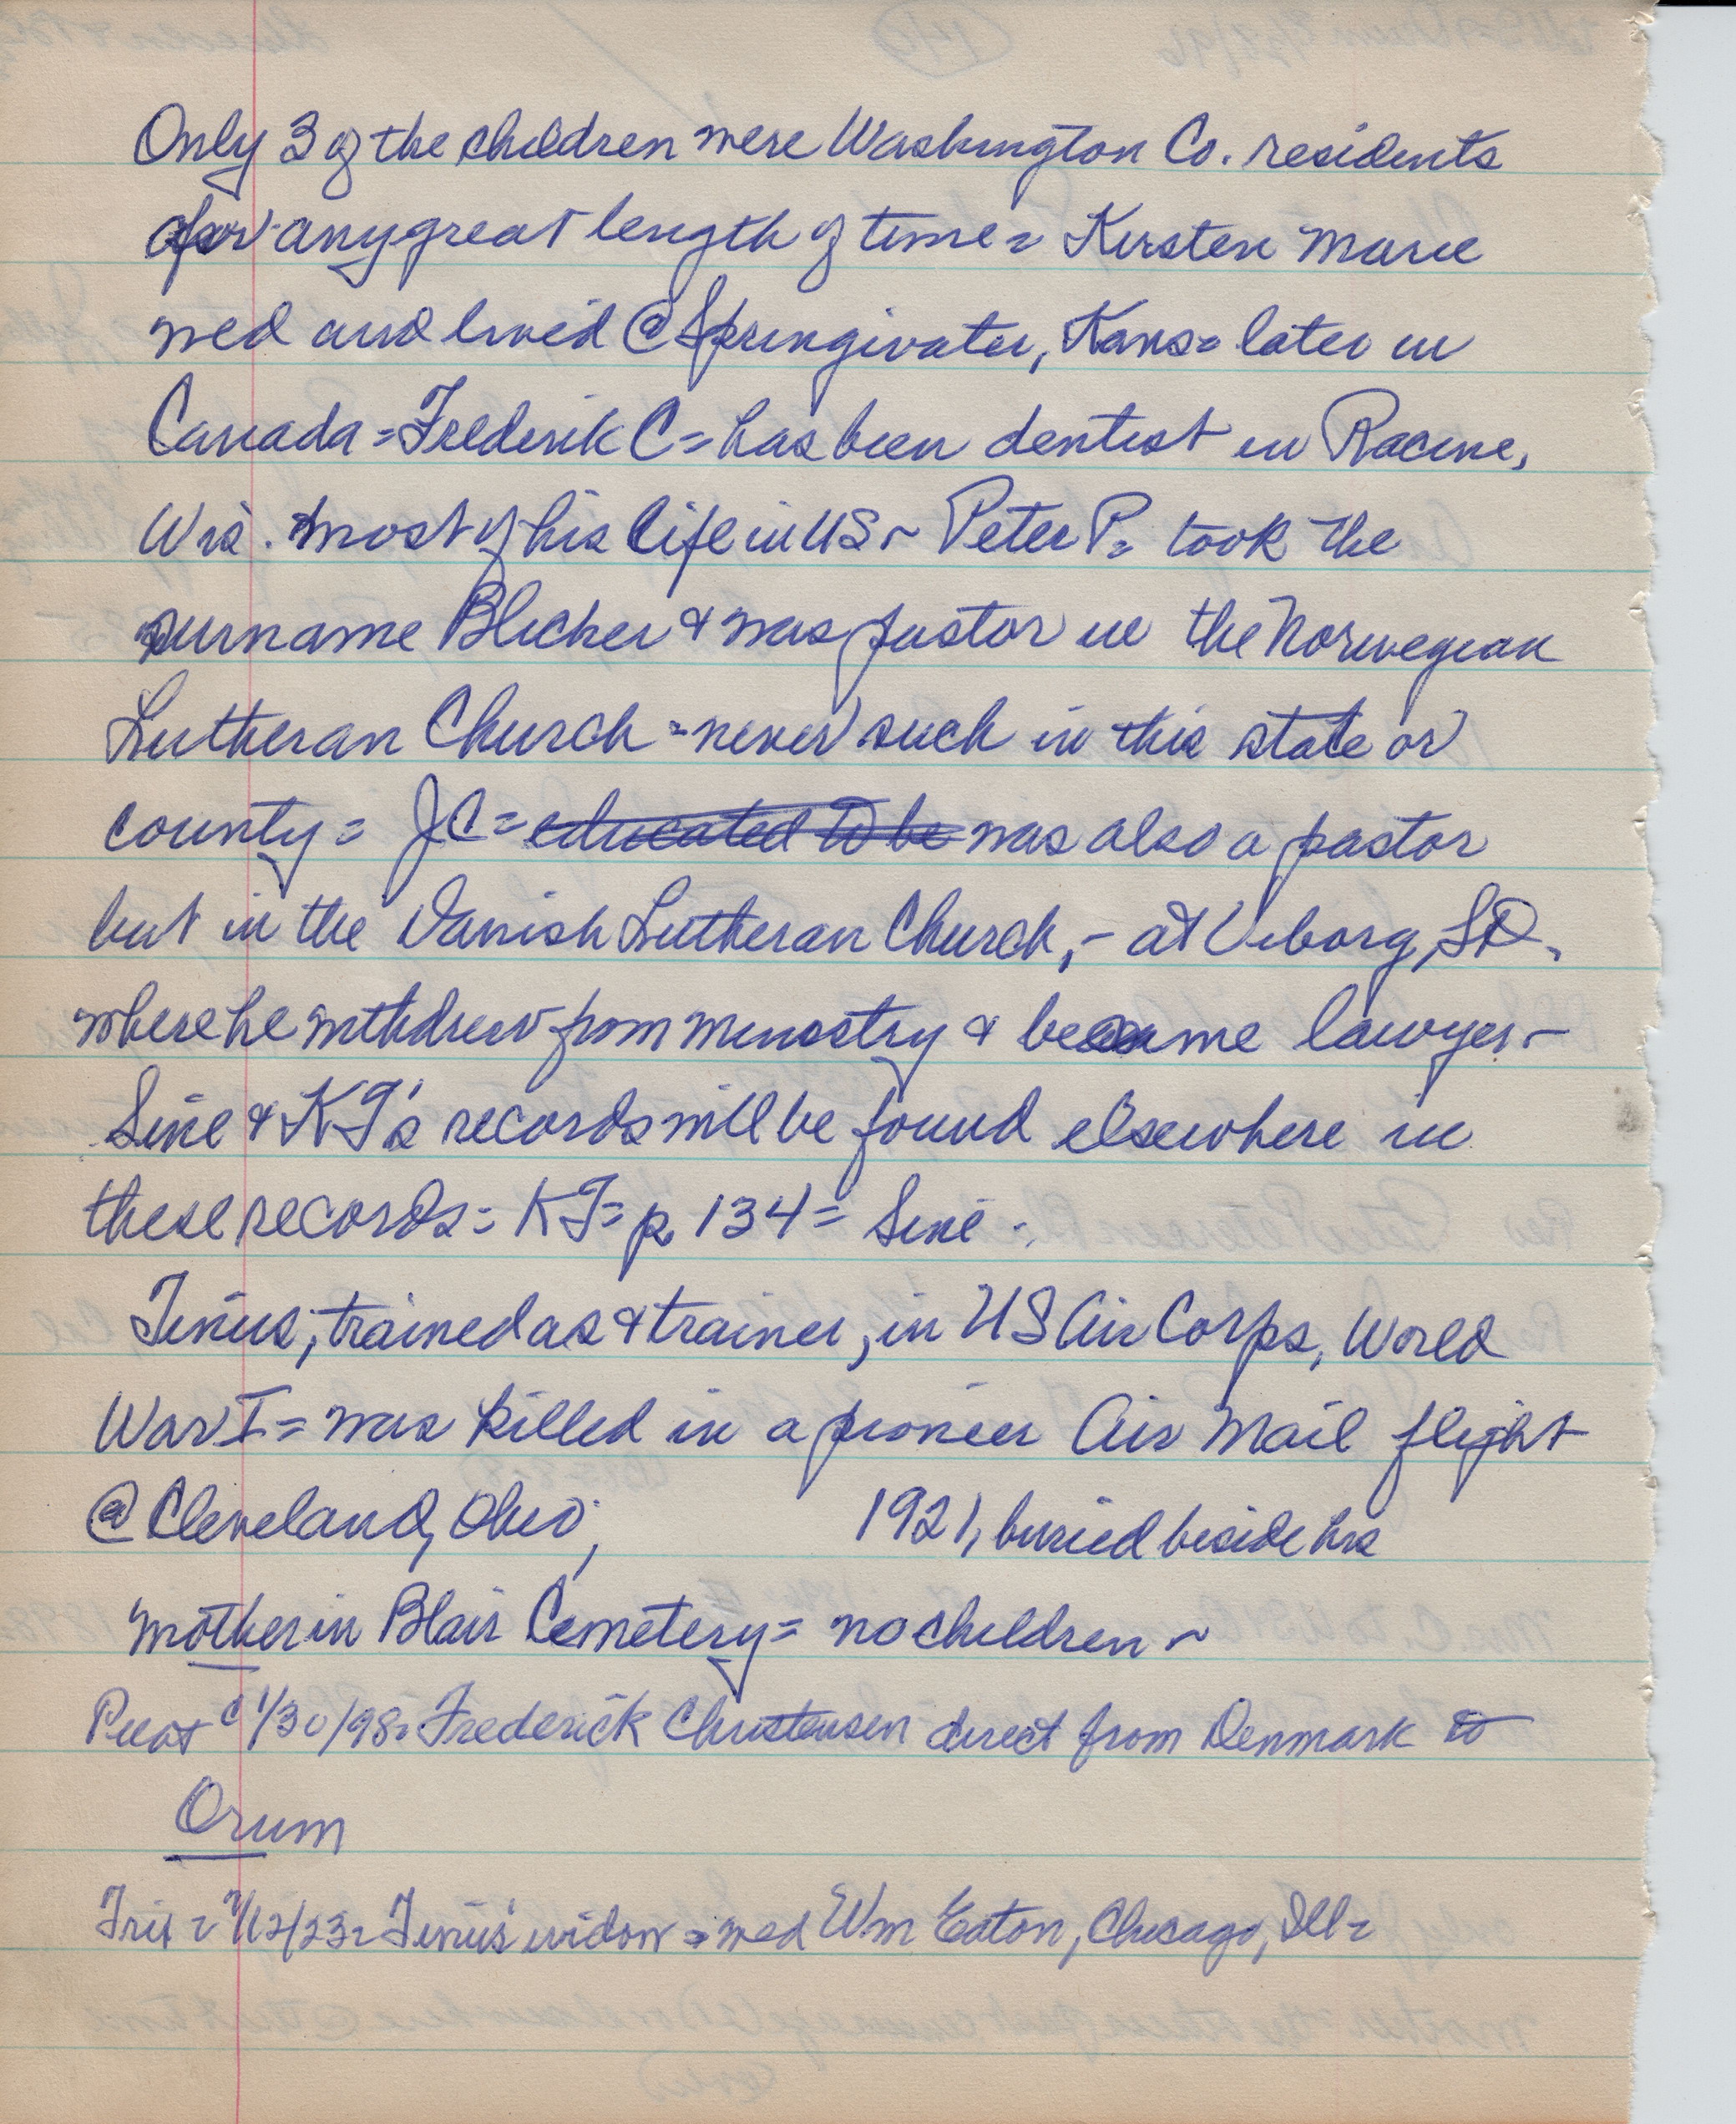 Only 3 of the children were Washington Co. residents
for any great length of time = Kirsten Marie
wed and lived @ Springwater, Kans = later in
Canada = Frederik C = has been dentist in Racine,
Wis. most of his life in US ~ Peter P. took the
surname Blicher & was pastor in the Norwegian
Lutheran Church = never such in this state or
county = JC = educated to be was also a pastor
but in the Danish Lutheran Church, - at Viborg, SD.
where he withdrew from ministry & became lawyer -
Sine & KJ's records will be found elsewhere in
these records = KJ = p. 134 = Sine -
Tinius, trained as & trainer, in US Air Corps, World
War I = was killed in a pioneer Air Mail flight
@ Cleveland, Ohio, 1921, buried beside his
mother in Blair Cemetery = no children ~
Pilot 1/30/98 = Frederick Christensen direct from Denmark to
Orum
Trib = /12/23 = Tinius' widow = wed Wm Eaton, Chicago, Ill =